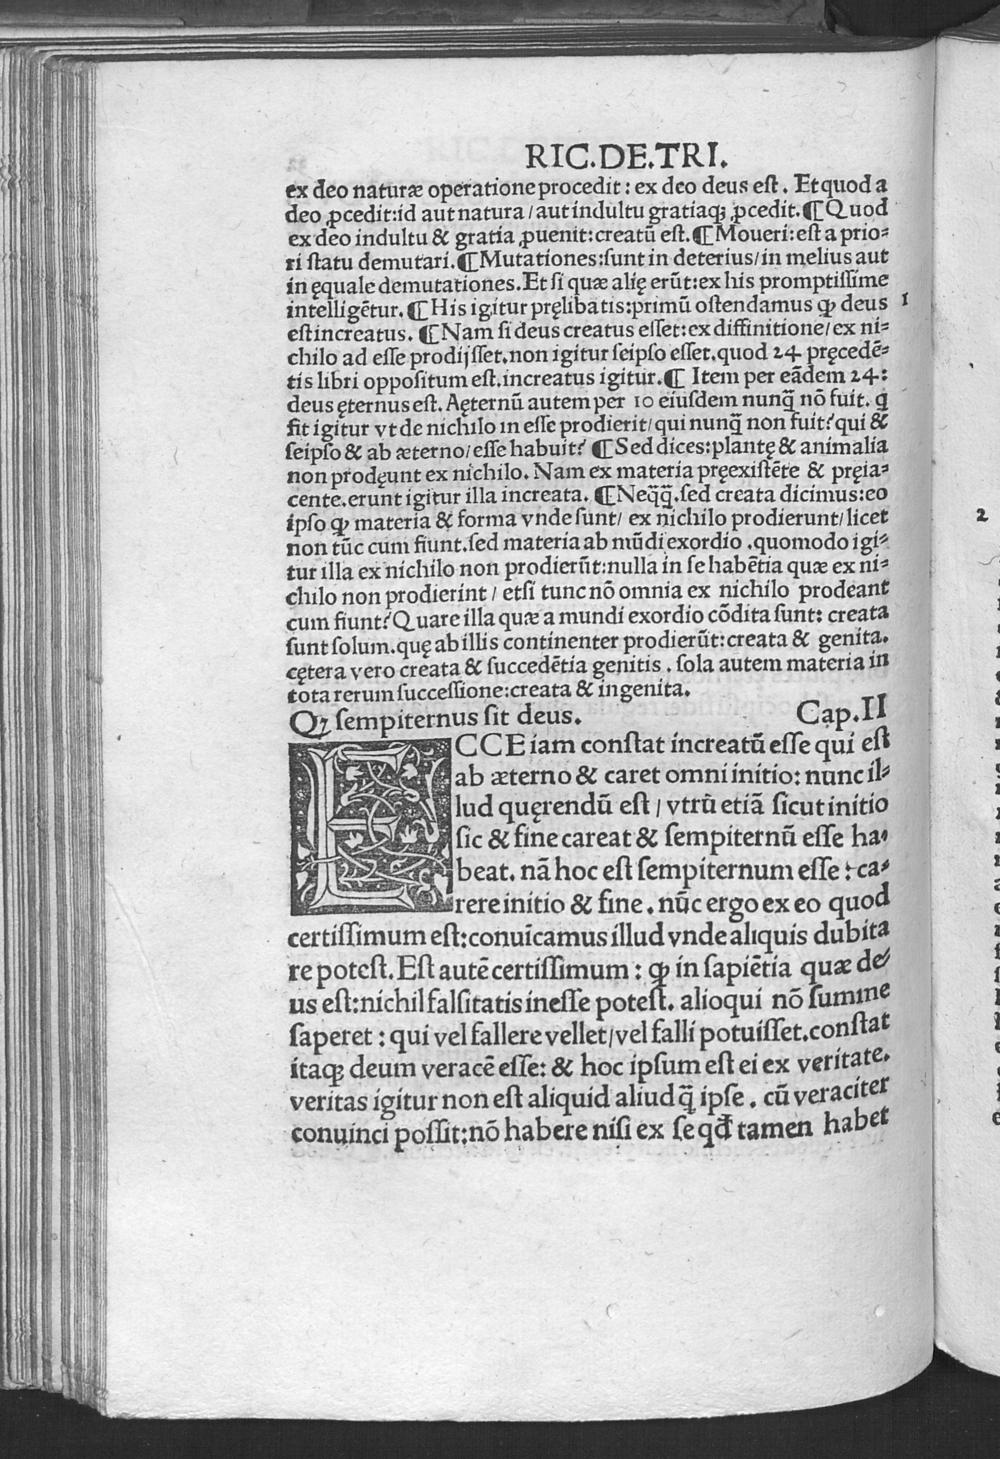 RIC.DE.TRI.
ex deo naturæ operatione procedit: ex deo deus eſt. Et quod a
deo ꝓcedit:id aut natura/aut indultu gratiaqꝫ ꝓcedit.¶Quod
ex deo indultu & gratia ꝓuenit:creatū eſt.¶Moueri:eſt a prio⸗
ri ſtatu demutari.¶Mutationes:ſunt in deterius/in melius aut
in ęquale demutationes.Et ſi quæ alię erūt:ex his promptiſſime
intelligētur.¶His igitur pręlibatis:primū oſtendamus ꝙ deus 1
eſt increatus. ¶Nam ſi deus creatus eſſet:ex diffinitione/ex ni⸗
chilo ad eſſe prodijſſet.non igitur ſeipſo eſſet.quod 24 pręcedē⸗
tis libri oppoſitum eſt.increatus igitur.¶ Item per eādem 24:
deus ęternus eſt. Aęternū autem per 10 eiuſdem nunq̄ nō fuit. q̄
fit igitur vt de nichilo in eſſe prodierit/qui nunq̄ non fuit?qui &
ſeipſo & ab æterno/eſſe habuit? ¶Sed dices:plantę & animalia
non prodęunt ex nichilo. Nam ex materia pręexiſtēte & pręia⸗
cente.erunt igitur illa increata. ¶Neq̄q̄.ſed creata dicimus:eo
ipſo ꝙ materia & forma vnde ſunt/ ex nichilo prodierunt/licet 2
non tūc cum fiunt.ſed materia ab mūdi exordio .quomodo igi⸗
tur illa ex nichilo non prodierūt:nulla in ſe habētia quæ ex ni⸗
chilo non prodierint / etſi tunc nō omnia ex nichilo prodeant
cum fiunt?Quare illa quæ a mundi exordio cōdita ſunt: creata
ſunt ſolum.quę ab illis continenter prodierūt:creata & genita.
cętera vero creata & ſuccedētia genitis . ſola autem materia in
tota rerum ſucceſſione:creata & ingenita.
Qꝫ ſempiternus ſit deus. Cap.II
ECCE iam conſtat increatū eſſe qui eſt
ab æterno & caret omni initio: nunc il⸗
lud quęrendū eſt / vtrū etiā ſicut initio
ſic & fine careat & ſempiternū eſſe ha⸗
beat. nā hoc eſt ſempiternum eſſe : ca⸗
rere initio & fine . nūc ergo ex eo quod
certiſſimum eſt:conuīcamus illud vnde aliquis dubita
re poteſt. Eſt autē certiſſimum : ꝙ in ſapiētia quæ de⸗
us eſt:nichil falſitatis ineſſe poteſt. alioqui nō ſumme
ſaperet : qui vel fallere vellet/vel falli potuiſſet.conſtat
itaqꝫ deum veracē eſſe: & hoc ipſum eſt ei ex veritate.
veritas igitur non eſt aliquid aliud q̄ ipſe . cū veraciter
conuinci poſſit:nō habere niſi ex ſe qđ tamen habet